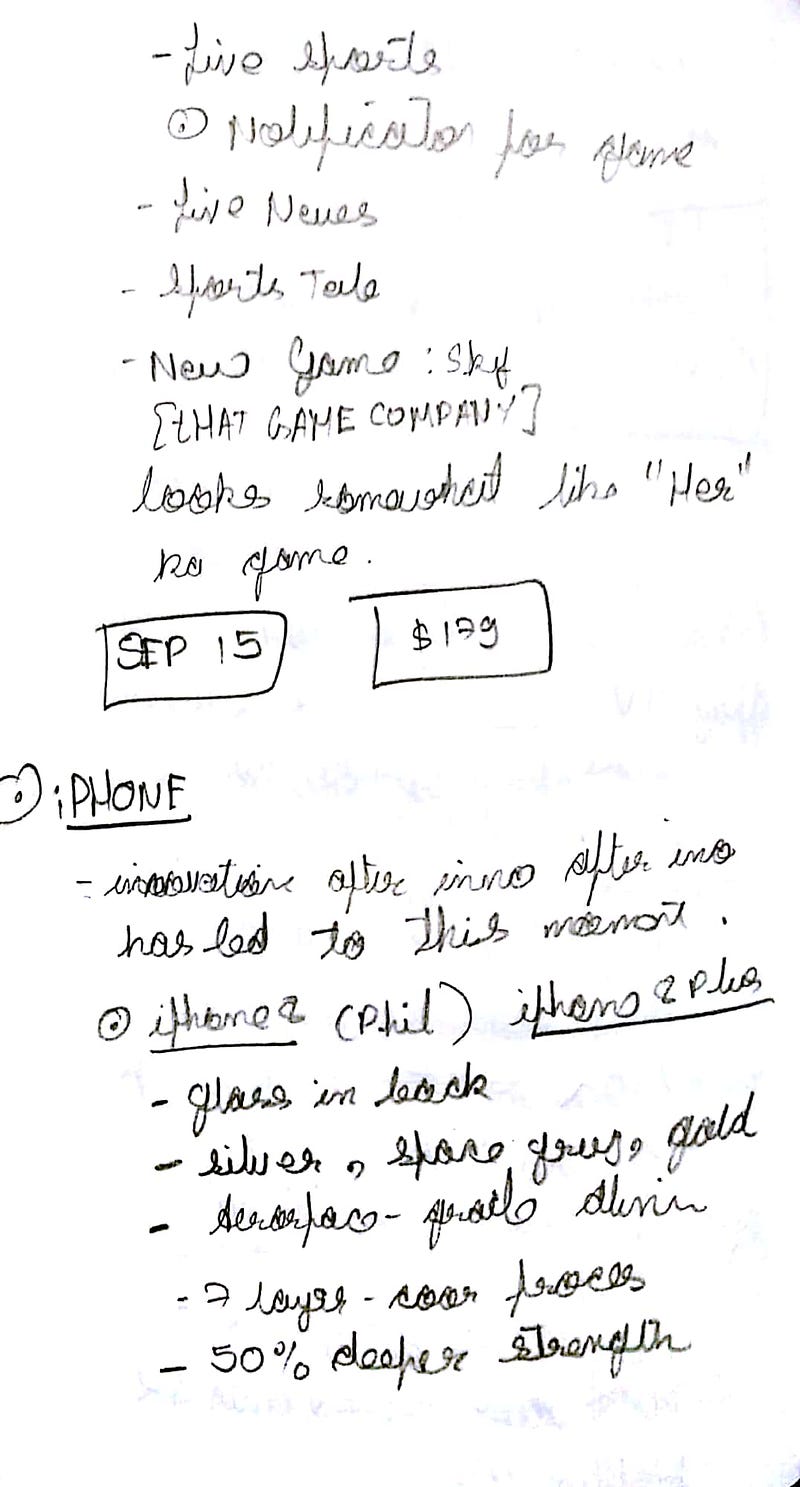 - Live sports
⊙ Notification for game
- Live News
- Sports Tab
- New Game : Sky
[tHAT GAME COMPANY]
looks somewhat like "Her"
ka game.
SEP 15 $179
⊙ iPHONE
- innovation after inno after ino
has led to this moment.
⊙ iphone 8 (Phil) iphone 8 Plus
- glass in back
- silver, space grey, gold
- Aerospac-grade
- 7 layer - coor proces
- 50% deeper strength